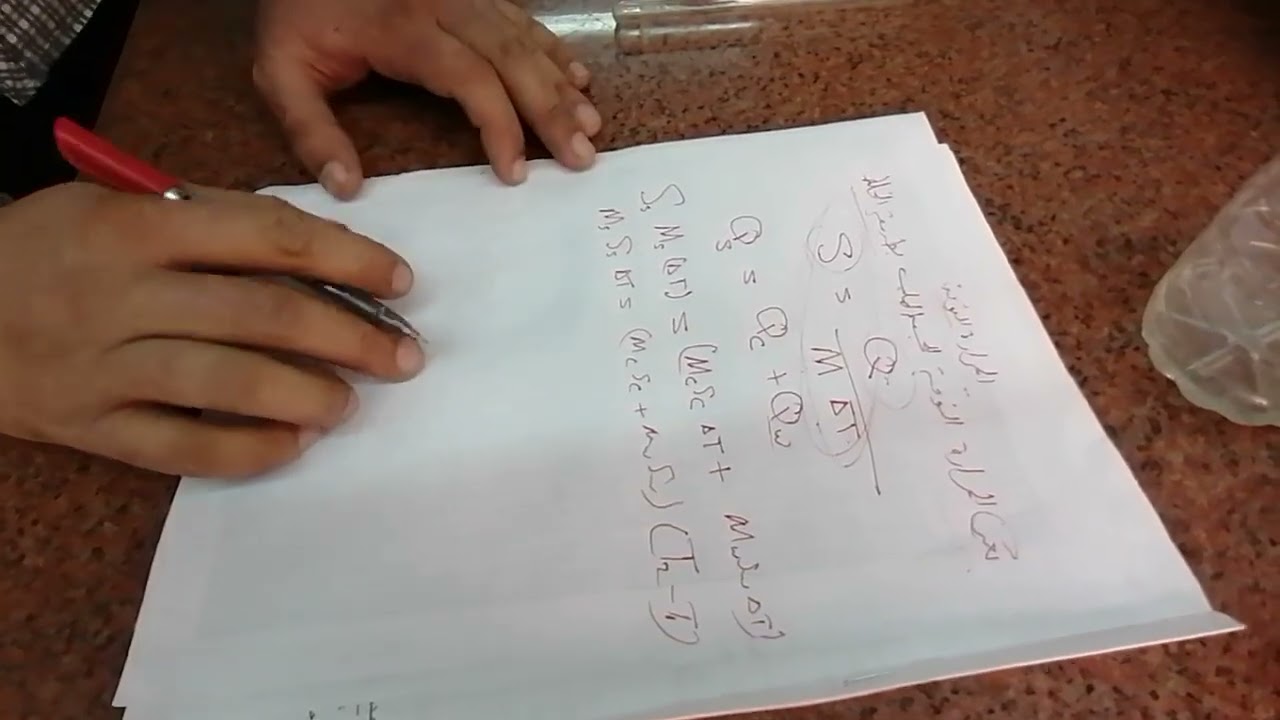 الحرارة النوعية
تعين الحرارة النوعية لجسم صلب بطريقة الخلط
S = Q / M ΔT
Qs = Qc + Qw
Ss Ms (ΔT) = (Mc Sc ΔT + Mw Sw ΔT)
Ms Ss ΔT = (Mc Sc + Mw Sw) (T2 - T1)